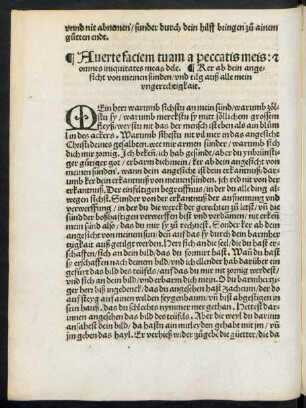 vnnd nit abnemen/ sunder durch dein hilff bringen zů ainem
gůtten ende.
¶ Auerte faciem tuam a peccatis meis: z
omnes iniquitates meas dele. ¶ Ker ab dein ange-
sicht von meinen sünden/ vnd tilg auß alle mein
vngerechtigkait.
Ein herr warumb sichstu an mein sünd/ warumb
stu sy/ warumb merckstu sy mit sölichem grossem
fleyß/ weystu nit das der mensch ist eben als ain blům
lin des ackers. Warumb sihestu nit vil mer in das angesicht
Christi deines gesalbten. wee mir armen sünder/ warumb sich
dich mir zornig. Ich bekenn ich hab gesündt/ aber du
ger gütiger got/ erbarm dich mein/ ker dein angesicht von
meinen sünden. wann dein angesicht ist dein erkantnuß/ dar-
umb ker dein erkantnuß von meinen sünden. ich red nit von der
erkantnuß. Der einfeltigen begreiffnuß/ in der du alle ding al-
wegen sichst. Sunder von der erkantnuß der auffnemung vnd
verwerffung/ in der du die werck der gerechten
sünder boßhafftigen verwerffen bist vnd verdamen/ nit erken
mein sünd also/ das du mir sy zů rechnest. Sunder ker ab dein
angesicht von meinen sünden auff das sy durch dein barmher
tzigkait auß getilgt werden. Herr sich an die seel/ die du hast er-
schaffen/ sich an dein bild/ das du formirt hast. Wañ du hast
sy erschaffen nach deinem bild/ vnd ich ellender hab darüber
gefürt das bild des teüfels/
vnd sich an dein bild/ vnd du erbarmest dich mein. O du barmhertzi-
ger herr biß ingedenck/ das du angesehen hast Zacheum/ der do
auff steyg auff ainen wilden feygenbaum/ vñ bist abgestigen in
sein hauß/ das du schlechts nymmer mer gethan. Hettest dar-
innen angesehen das bild des teüfels. Aber die weyl du darinn
an sahest dein bild/ da hastu mitleyden gehabt mit jm/ vñ
jm geben das hayl. Er verhieß wider zůgeben die gůtter/ die da